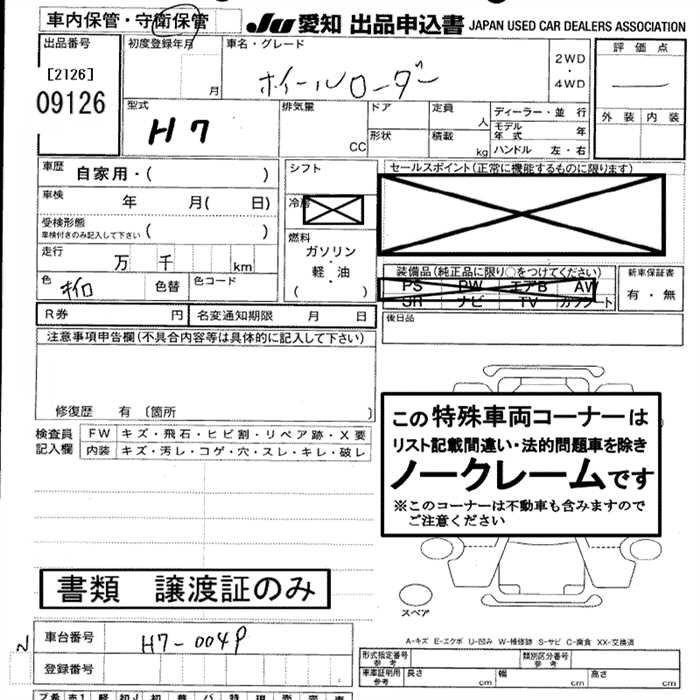 車内保管・守衛保管
JU 愛知 出品申込書 JAPAN USED CAR DEALERS ASSOCIATION
出品番号 初度登録年月 車名・グレード
[2126]
09126
月
ホイールローダー
2WD
・
4WD
評価点
外装 内装
型式
H7
排気量
CC
ドア 定員
人
形状 積載
kg
ディーラー・並行
モデル年式 年
ハンドル 左・右
車歴 自家用・( )
車検 年 月( 日)
受検形態
車検付きのみ記入して下さい ( )
走行 万 千 km
色 色替 色コード
シフト
冷房
燃料
ガソリン
・
軽・油
( )
セールスポイント(正常に機能するものに限ります)
装備品(純正品に限り○をつけてください)
PS PW エアB AW
SR ナビ TV カワシート
新車保証書
有・無
R券 円 名変通知期限 月 日
後日品
注意事項申告欄(不具合内容等は具体的に記入して下さい)
修復歴 有 〔箇所 〕
検査員
記入欄
FW キズ・飛石・ヒビ割・リペア跡・X要
内装 キズ・汚レ・コゲ・穴・スレ・キレ・破レ
この特殊車両コーナーは
リスト記載間違い・法的問題車を除き
ノークレームです
※このコーナーは不動車も含みますので
ご注意ください
書類 譲渡証のみ
スペア
車台番号 H7-0049
登録番号
A-キズ E-エクボ U-凹み W-補修跡 S-サビ C-腐食 XX-交換済
形式指定番号
参考
類別区分番号
参考
車庫証明用
参考
長さ cm 幅 cm 高さ cm